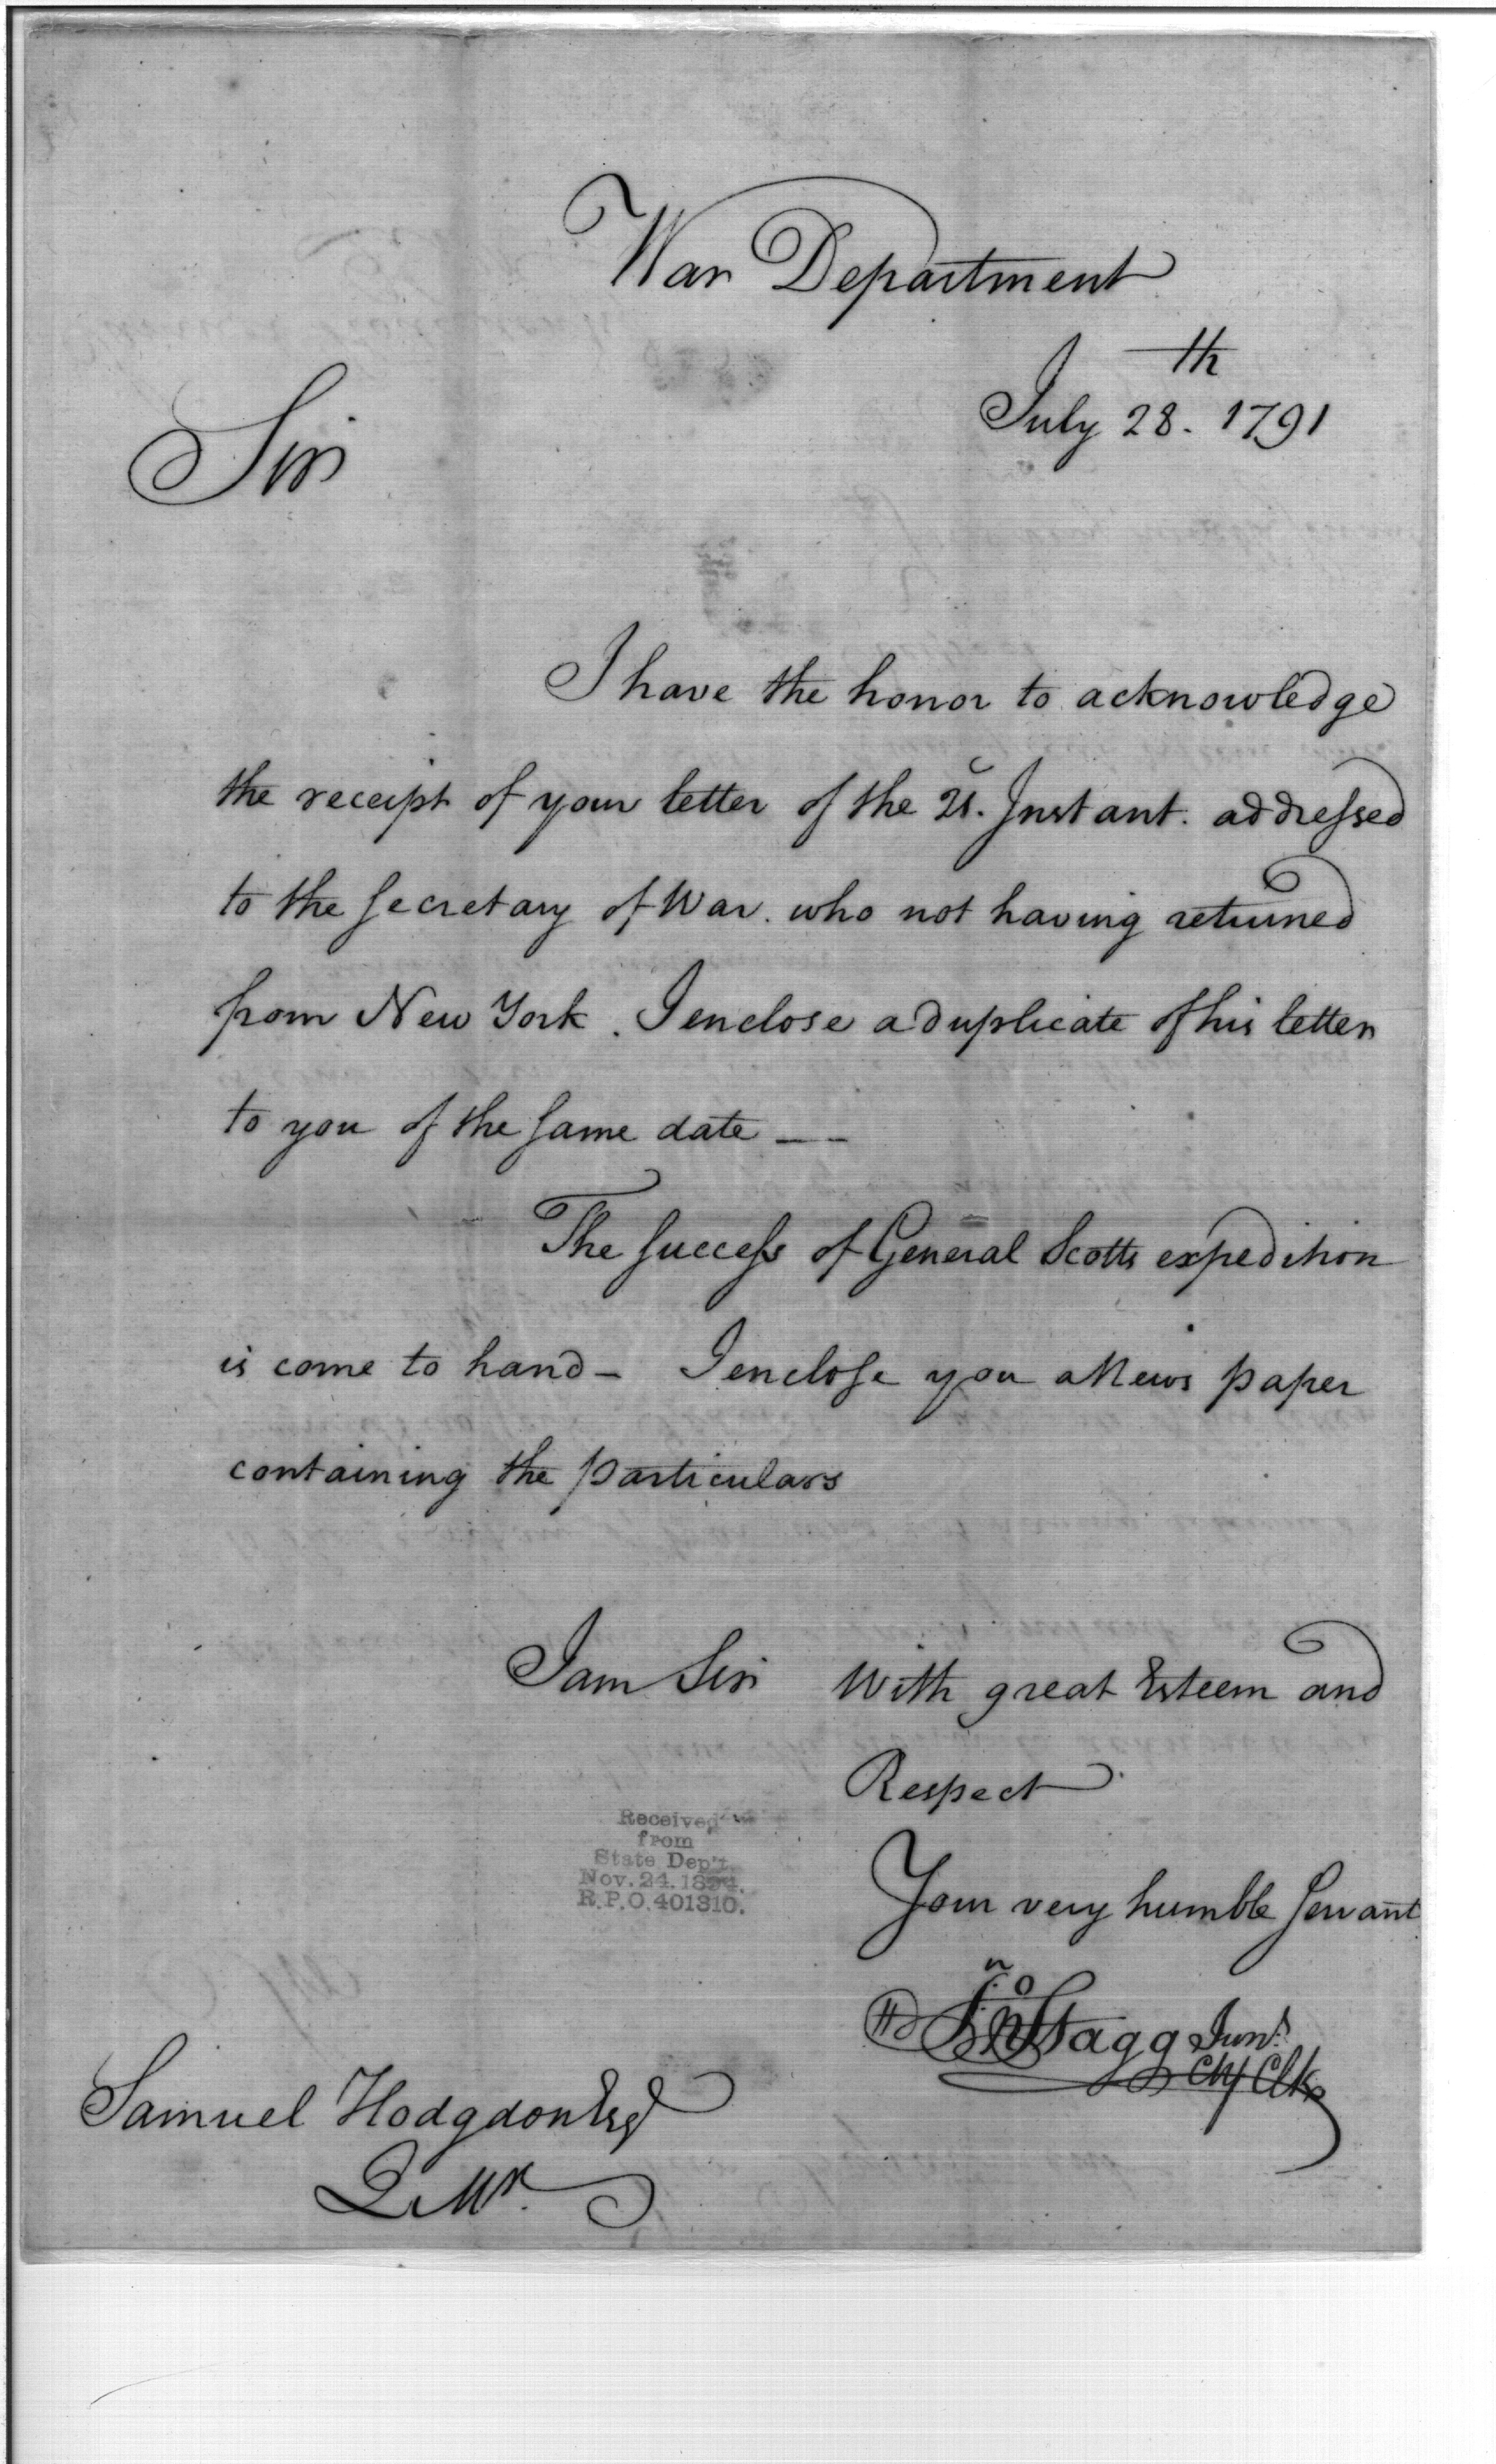 War Department
July 28.th 1791
Sir
I have the honor to acknowledge
the receipt of your letter of the 21. Instant. addressed
to the Secretary of War. who not having returned
from New York. I enclose a duplicate of his letter
to you of the same date__
The success of General Scotts expedition
is come to hand_ I enclose you a News paper
containing the particulars
I am Sir With great Esteem and
Respect
Your very humble servant
Jno Stagg Junr.
Chf Clk
Received
from
State Dep't
Nov. 24. 18
R.P.O. 401310.
Samuel Hodgdon Esq
Q Mr.